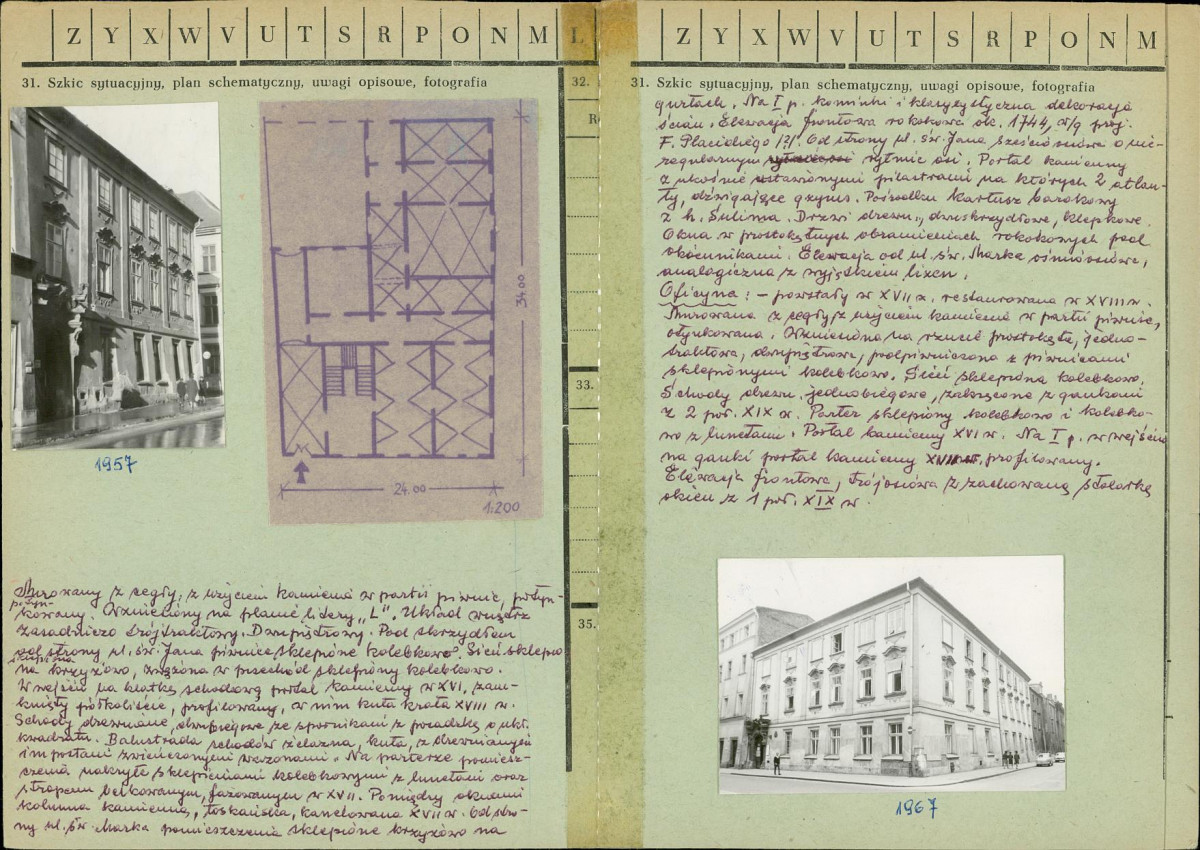 Z Y X W V U T S R P O N M L
31. Szkic sytuacyjny, plan schematyczny, uwagi opisowe, fotografia
32.
R
33.
35.
1957
34.00
24.00
1:200
Murowany z cegły, z użyciem kamienia w partii piwnic, potyn-
kowany. Wzniesiony na planie litery „L". Układ wnętrz
zasadniczo trójtraktowy. Dwupiętrowy. Pod skrzydłem
od strony ul. św. Jana piwnice sklepione kolebkowo. Sień sklepio
na krzyżowo, zwężona w przechód sklepiony kolebkowo.
W wejściu na klatkę schodową portal kamienny w XVI, zam-
knięty półkoliście, profilowany, w nim kuta krata XVIII w.
Schody drewniane, dwubiegowe ze spocznikami z posadzką o ukł.
kwadratu. Balustrada schodów żelazna, kuta, z drewnianymi
impostami zwieńczonymi wazonami. Na parterze pomiesz-
czenia nakryte sklepieniami kolebkowymi z lunetami oraz
stropem belkowanym, fazowanym w XVII. Pomiędzy oknami
kolumna kamienna, toskańska, kanelowana XVII w. Od stro-
ny ul. św. Marka pomieszczenia sklepione krzyżowo na
Z Y X W V U T S R P O N M
31. Szkic sytuacyjny, plan schematyczny, uwagi opisowe, fotografia
gurtach. Na I p. kominki i klasycystyczna dekoracja
ścian. Elewacja frontowa rokokowa ok. 1744, w/g proj.
F. Placidiego /?/. Od strony ul. św. Jana sześcioosiowa o nie-
regularnym rytmie osi. Portal kamienny
z ukośnie ustawionymi pilastrami na których 2 atlan-
ty, dźwigające gzyms. Pośrodku kartusz barokowy
z h. Sulima. Drzwi drewn., dwuskrzydłowe, klepkowe.
Okna w prostokątnych obramieniach rokokowych pod
okapnikami. Elewacja od ul. św. Marka ośmioosiowa,
analogiczna z wyjątkiem lizen.
Oficyna: – powstały w XVII w. restaurowana w XVIII w.
Murowana z cegły z użyciem kamienia w partii piwnic,
otynkowana. Wzniesiona na rzucie prostokąta, jedno-
traktowa, dwupiętrowa, podpiwniczona z piwnicami
sklepionymi kolebkowo. Sień sklepiona kolebkowo.
Schody drewn. jednobiegowe, zakręcone z gankami
z 2 poł. XIX w. Parter sklepiony kolebkowo i kolebko-
wo z lunetami. Portal kamienny XVI w. Na I p. w wejściu
na ganki portal kamienny profilowany.
Elewacja frontowa, trójosiowa z zachowaną stolarką
okien z 1 poł. XIX w.
1967